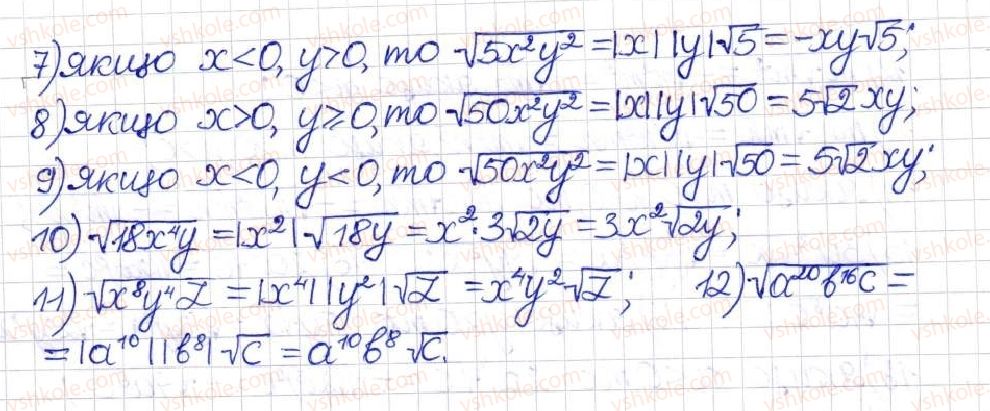 7) якщо x<0, y>0, то √5x²y² = |x||y|√5 = -xy√5;
8) якщо x>0, y≥0, то √50x²y² = |x||y|√50 = 5√2 xy;
9) якщо x<0, y<0, то √50x²y² = |x||y|√50 = 5√2 xy;
10) √18x⁴y = |x²|√18y = x²·3√2y = 3x²√2y;
11) √x⁸y⁴z = |x⁴||y²|√z = x⁴y²√z; 12) √a²⁰b¹⁶c =
= |a¹⁰||b⁸|√c = a¹⁰b⁸√c.